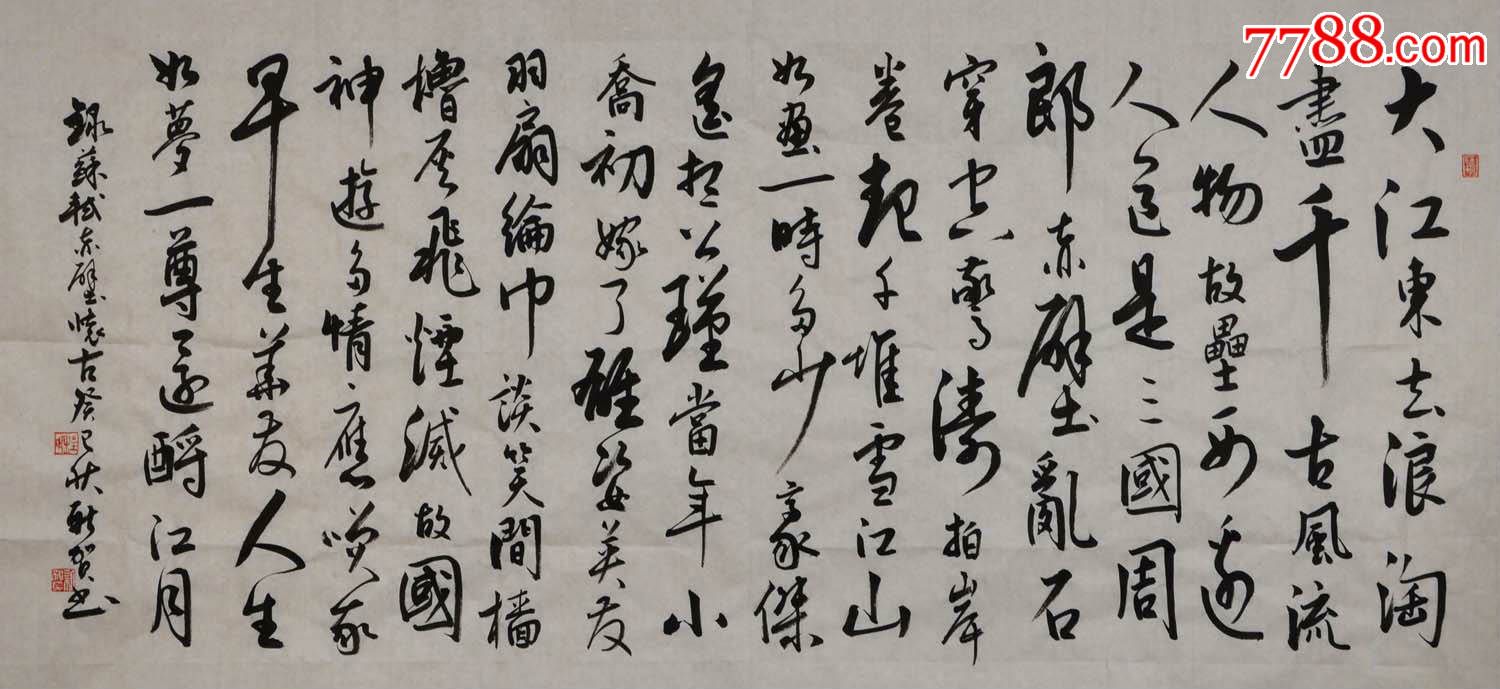 7788.com
大江東去浪淘
盡千古風流
人物故壘西邊
人道是三國周
郎赤壁亂石
穿空驚濤拍岸
卷起千堆雪江山
如畫一時多少豪傑
遙想公瑾當年小
喬初嫁了雄姿英發
羽扇綸巾談笑間檣
櫓灰飛煙滅故國
神遊多情應笑我
早生華發人生
如夢一尊還酹江月
錄蘇軾赤壁懷古癸巳秋書